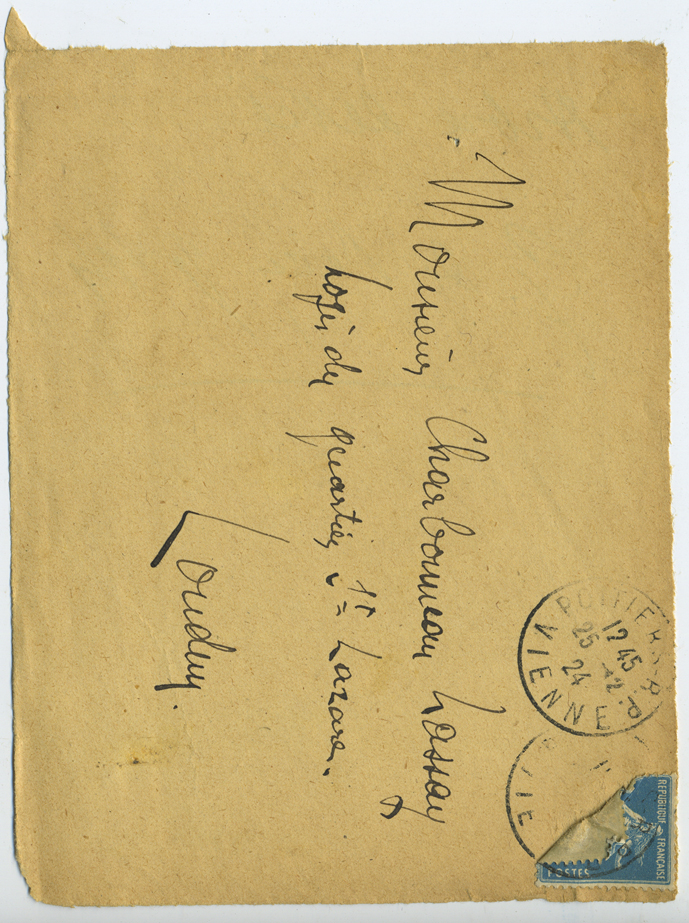 Monsieur Charbonneau Lassay
Logis du quartier St= Lazare.
Loudun.
POITIERS-R.P.
12 45
25 12
24
VIENNE
REPUBLIQUE FRANÇAISE
POSTES